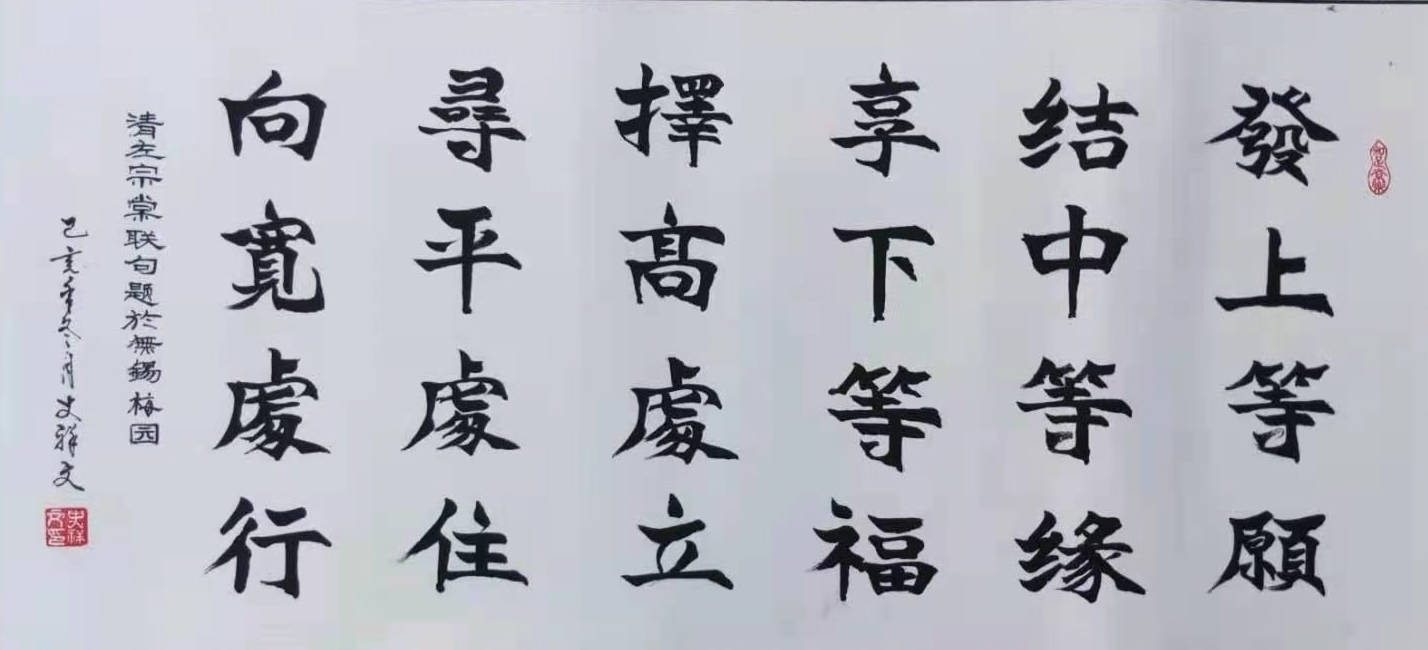 發上等願
结中等缘
享下等福
擇高處立
尋平處住
向寬處行
清左宗棠联句题於無錫梅园
己亥年冬月史祥文